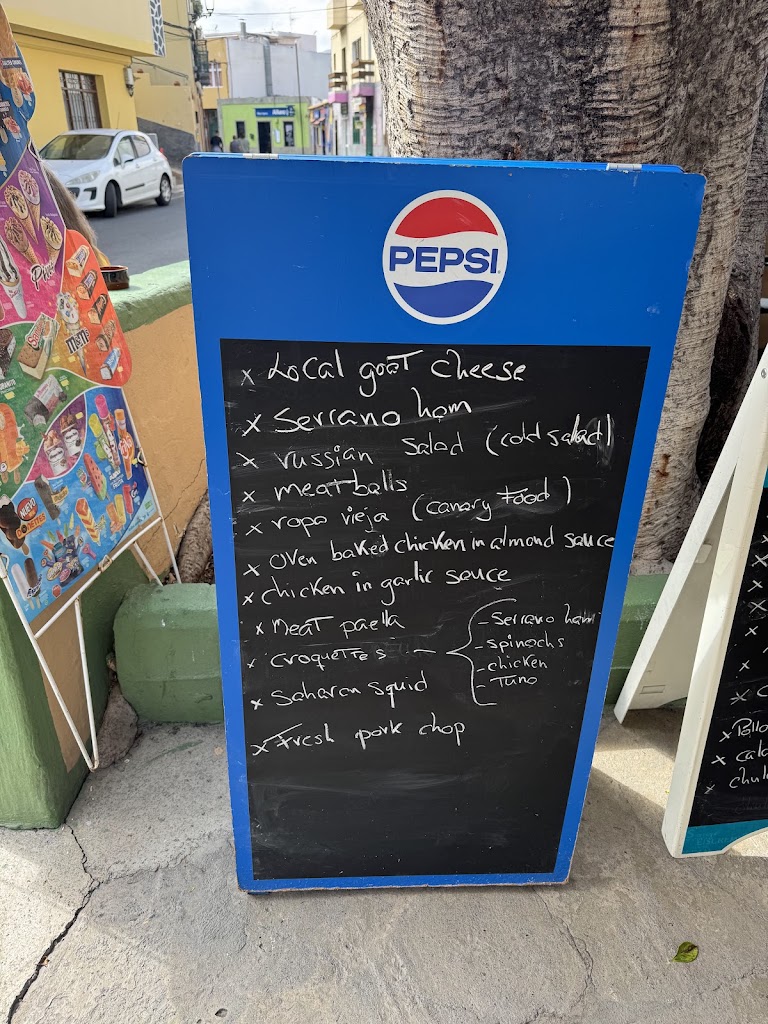 PEPSI
x Local goat cheese
x Serrano ham
x russian salad (cold salad)
x meatballs
x ropa vieja (canary Food)
x oven baked chicken in almond sauce
x chicken in garlic sauce
x Meat paella
x croquettes
- Serrano ham
- spinachs
- chicken
- Tuna
x Saharan squid
x Fresh pork chop
Allianz
M&M's